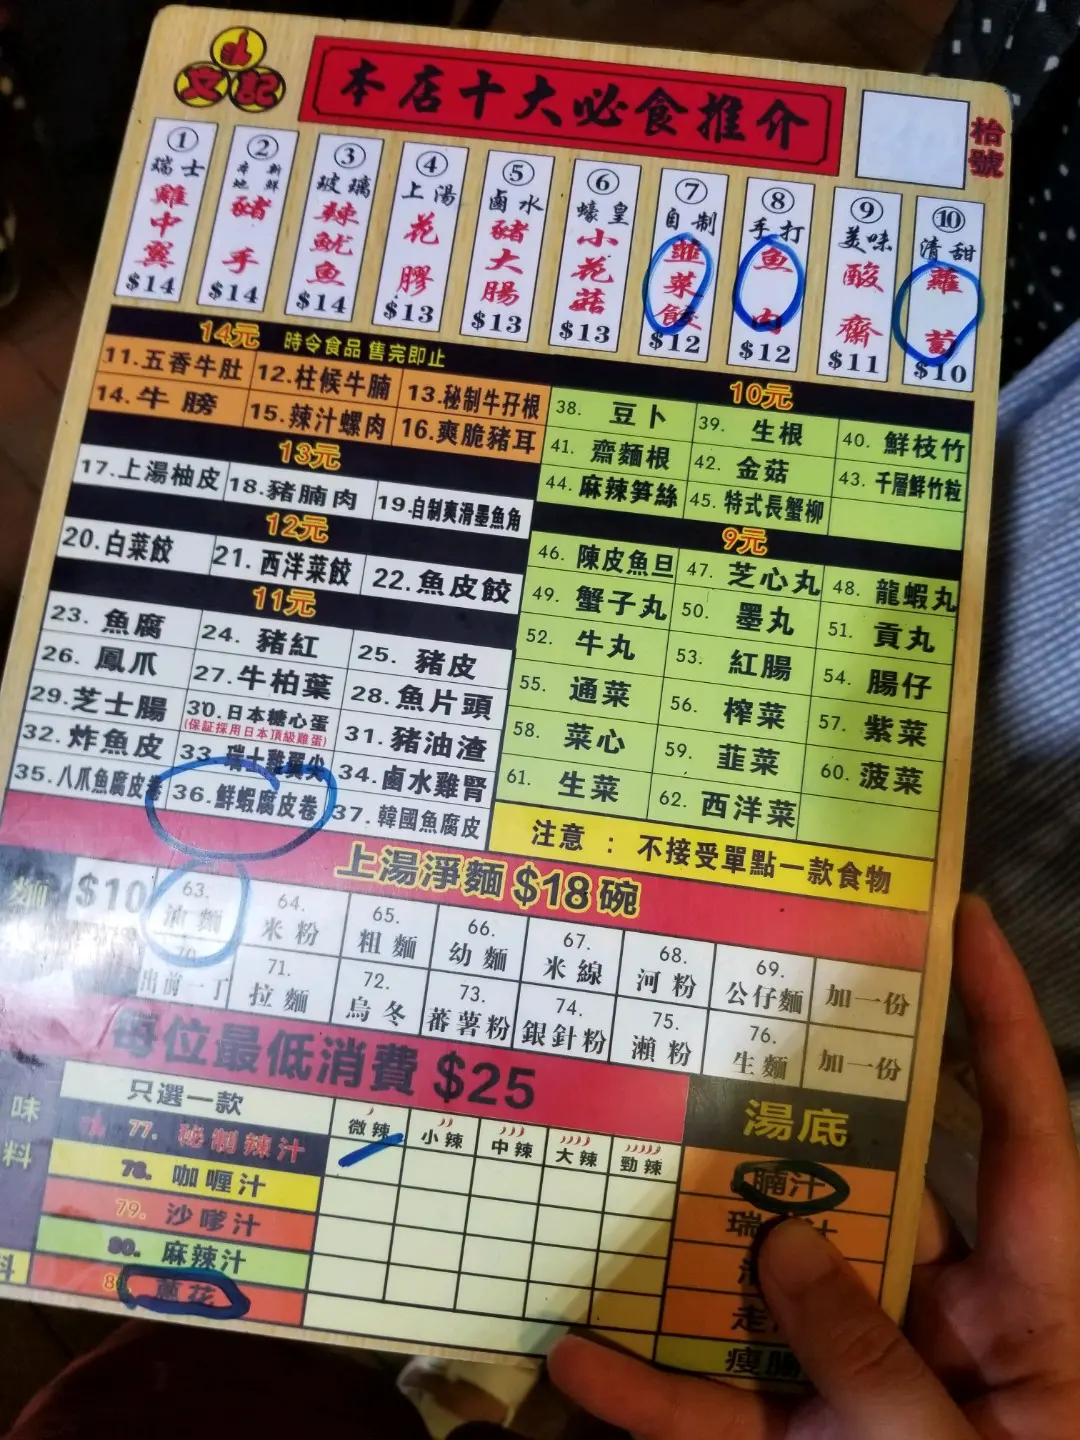 文記
本店十大必食推介
枱號
① 瑞士雞中翼 $14
② 新鮮本地豬手 $14
③ 玻璃辣魷魚 $14
④ 上湯花膠 $13
⑤ 鹵水豬大腸 $13
⑥ 蠔皇小花菇 $13
⑦ 自制韮菜餃 $12
⑧ 手打魚肉 $12
⑨ 美味酸齋 $11
⑩ 清甜蘿蔔 $10
14元 時令食品 售完即止
11.五香牛肚 12.柱候牛腩 13.秘制牛孖根
14.牛膀 15.辣汁螺肉 16.爽脆豬耳
13元
17.上湯柚皮 18.豬腩肉 19.自制爽滑墨魚角
12元
20.白菜餃 21.西洋菜餃 22.魚皮餃
11元
23.魚腐 24.豬紅 25.豬皮
26.鳳爪 27.牛柏葉 28.魚片頭
29.芝士腸 30.日本糖心蛋 31.豬油渣
(保証採用日本頂級雞蛋)
32.炸魚皮 33.瑞士雞翼尖 34.鹵水雞腎
35.八爪魚腐皮卷 36.鮮蝦腐皮卷 37.韓國魚腐皮
10元
38.豆卜 39.生根 40.鮮枝竹
41.齋麵根 42.金菇 43.千層鮮竹粒
44.麻辣笋絲 45.特式長蟹柳
9元
46.陳皮魚旦 47.芝心丸 48.龍蝦丸
49.蟹子丸 50.墨丸 51.貢丸
52.牛丸 53.紅腸 54.腸仔
55.通菜 56.榨菜 57.紫菜
58.菜心 59.韮菜 60.菠菜
61.生菜 62.西洋菜
注意 : 不接受單點一款食物
上湯淨麵 $18碗
麵 $10 63.油麵 64.米粉 65.粗麵 66.幼麵 67.米線 68.河粉 69.公仔麵 加一份
70.出前一丁 71.拉麵 72.烏冬 73.蕃薯粉 74.銀針粉 75.瀨粉 76.生麵 加一份
每位最低消費 $25
味料
只選一款 微辣 小辣 中辣 大辣 勁辣
77. 秘制辣汁
78. 咖喱汁
79. 沙嗲汁
80. 麻辣汁
蔥花
料
湯底
腩汁
瑞
走
瘦腩